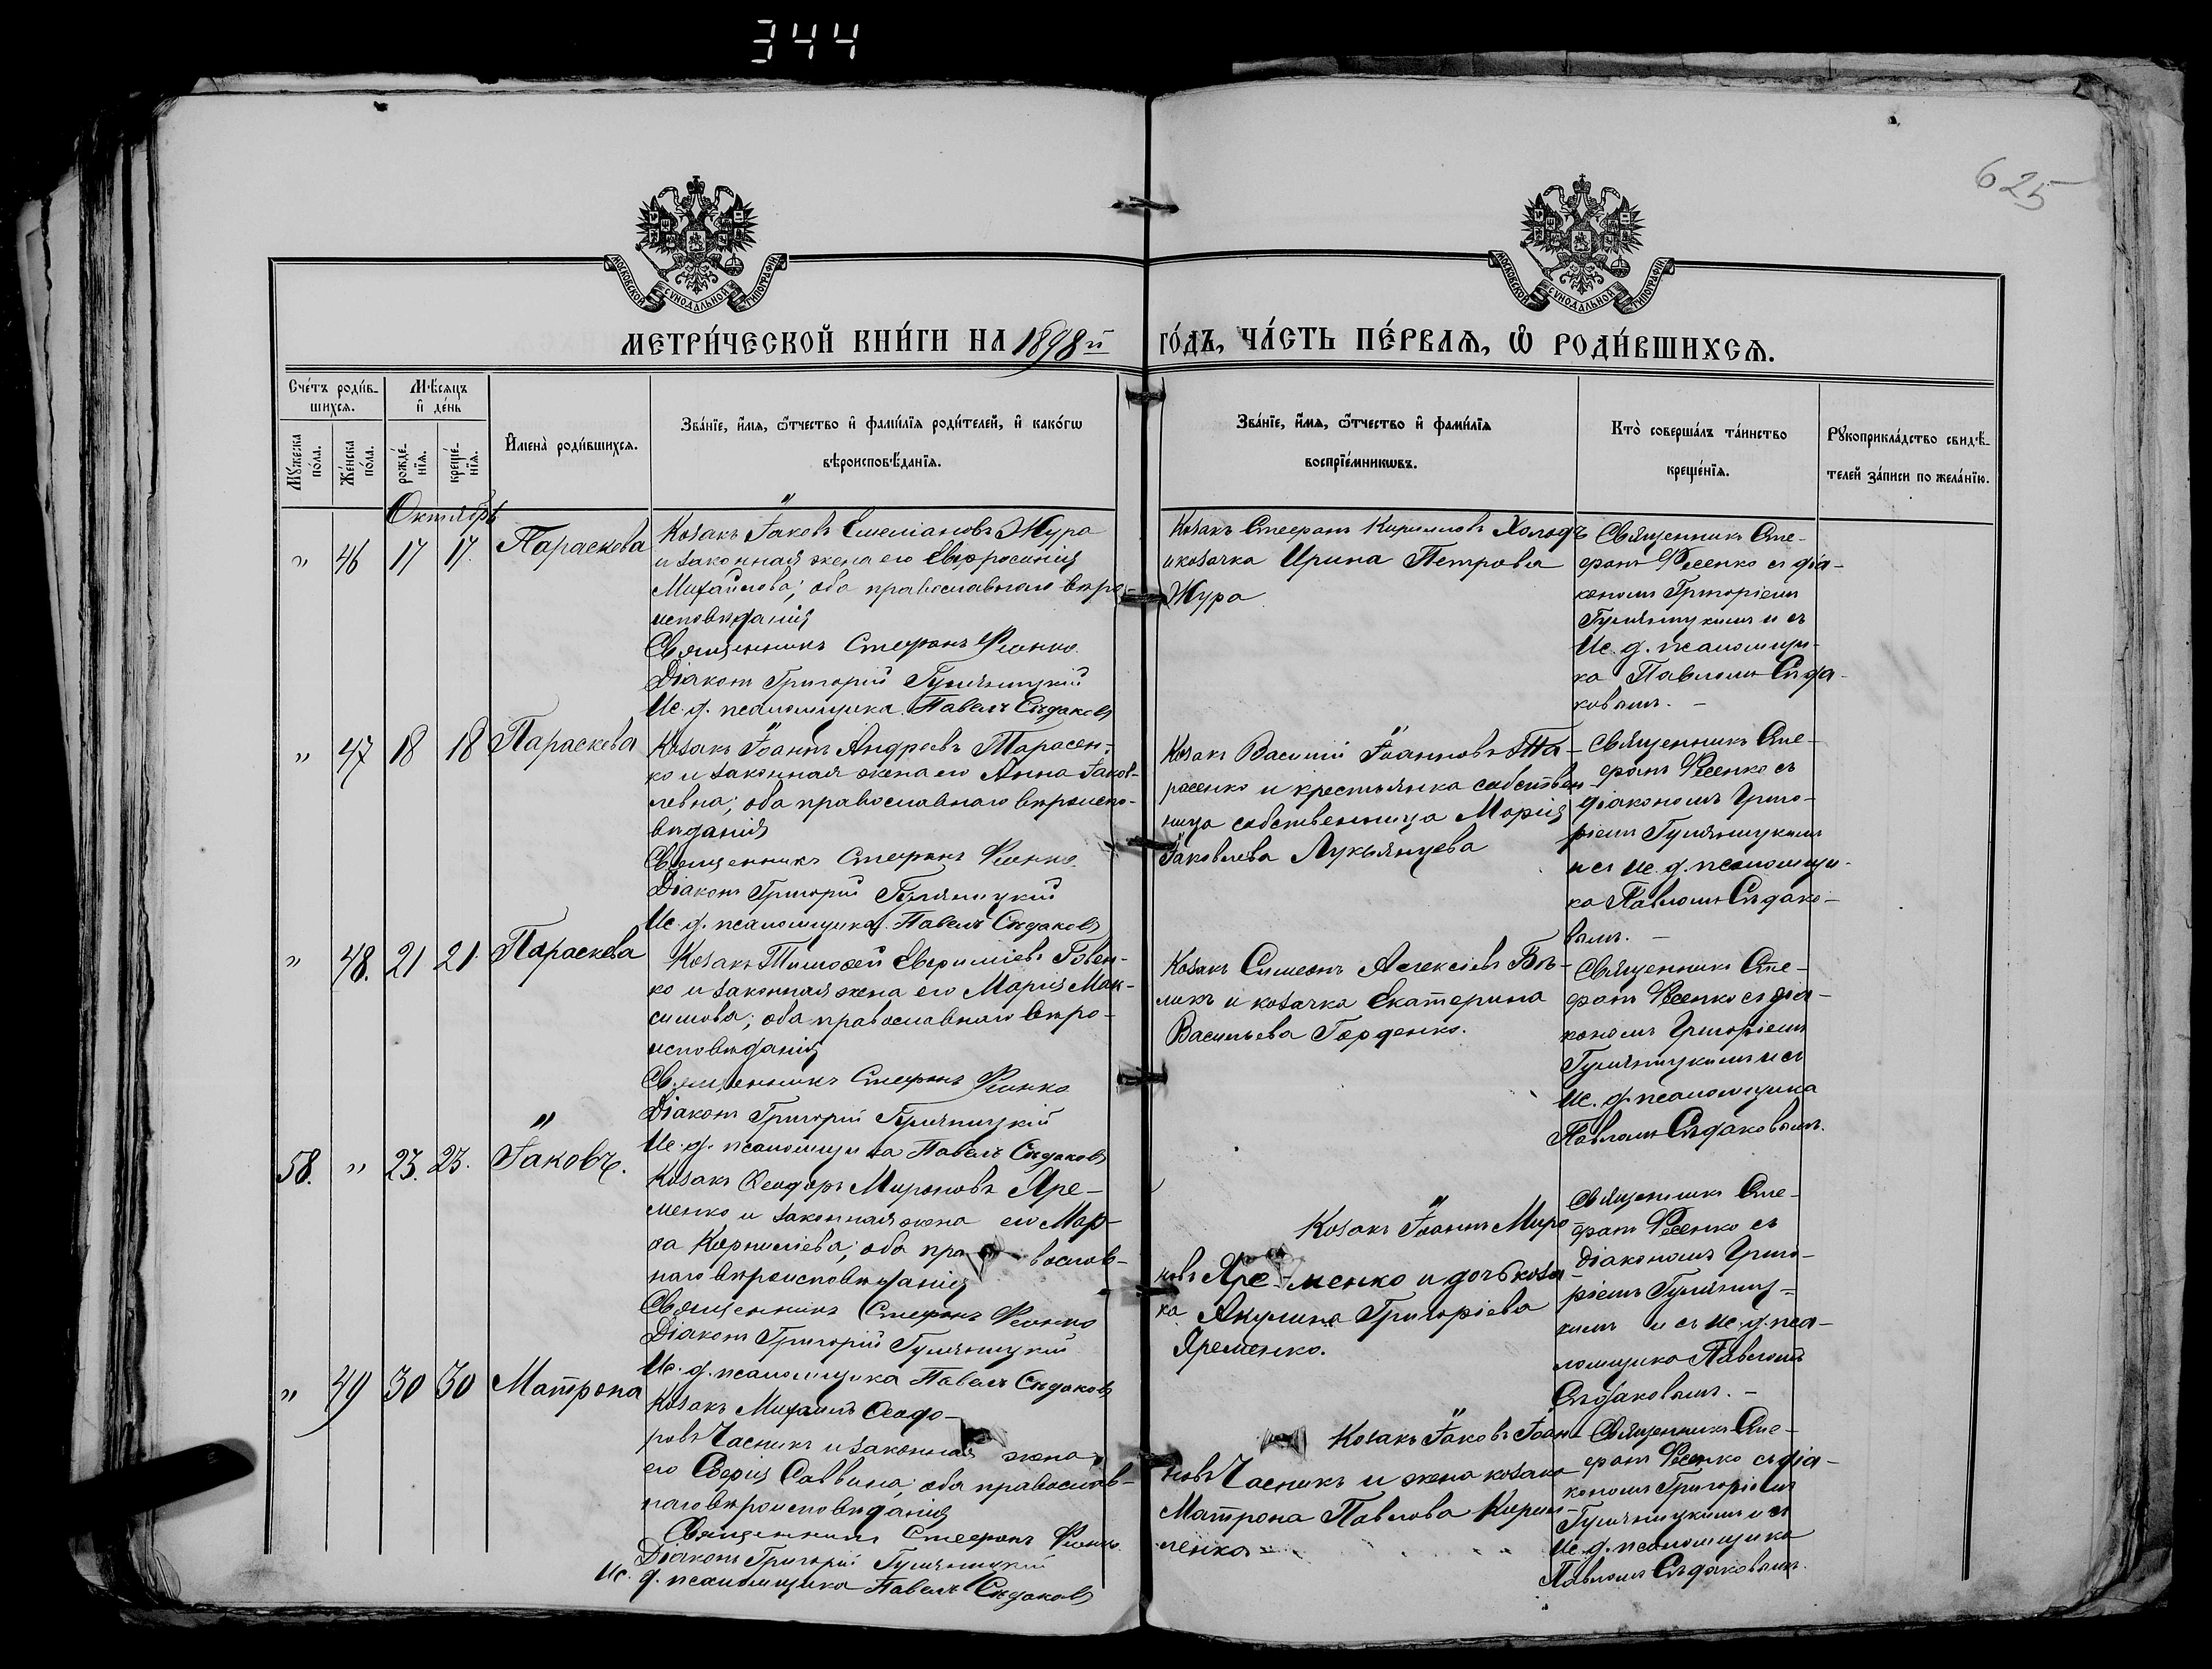 344
625
МОСКОВСКОЙ СѴНОДАЛЬНОЙ ТИПОГРАФІИ
МОСКОВСКОЙ СѴНОДАЛЬНОЙ ТИПОГРАФІИ
МЕТРИ́ЧЕСКОЙ КНИ́ГИ НА 1898й
ГО́ДЪ, ЧА́СТЬ ПЕ́РВАѦ, Ѽ РОДИ́ВШИХСѦ.
Сче́тъ роди́в-
шихсѧ.
Мꙋжеска по́ла.
Же́нска по́ла.
Мѣ́сѧцъ
и҆ де́нь
рожде́-
нїѧ.
креще́-
нїѧ.
И҆мена̀ роди́вшихсѧ.
Зва́нїе, и҆́мѧ, ѻ҆́тчество и҆ фами́лїѧ роди́телей, и҆ како́гѡ
вѣроисповѣ́данїѧ.
Зва́нїе, и҆́мѧ, ѻ҆́тчество и҆ фами́лїѧ
воспрїе́мникѡвъ.
Кто̀ соверша́лъ та́инство
креще́нїѧ.
Рꙋкоприкла́дство свидѣ́-
телей за́писи по жела́нїю.
Октябрь
" 46 17 17. Параскева
Козакъ Іаковъ Емеліановъ Жура
и законная жена его Евфросинія
Михайлова; оба православнаго вѣро-
исповѣданія
Священникъ Стефанъ Фесенко.
Діаконъ Григорій Гуляницкій
Ис. д. псаломщика Павелъ Сѣдаковъ
Козакъ Стефанъ Кирилловъ Холодъ
и козачка Ирина Петрова
Жура
Священникъ Сте-
фанъ Фесенко съ діа-
кономъ Григоріемъ
Гуляницкимъ и съ
Ис. д. псаломщи-
ка Павломъ Сѣда-
ковымъ. –
" 47 18 18 Параскева
Козакъ Іоаннъ Андреевъ Тарасен-
ко и законная жена его Анна Іаков-
левна; оба православнаго вѣроиспо-
вѣданія
Священникъ Стефанъ Фесенко.
Діаконъ Григорій Гуляницкій
Ис. д. псаломщика Павелъ Сѣдаковъ
Козакъ Василій Іоанновъ Та-
расенко и крестьянка собствен-
ница собственница Марія
Іаковлева Лукьянцева
Священникъ Сте-
фанъ Фесенко съ
діакономъ Григо-
ріемъ Гуляницкимъ
и съ Ис. д. псаломщи-
ка Павломъ Сѣдако-
вымъ. –
" 48. 21 21. Параскева
Козакъ Тимоѳей Евфиміевъ Говен-
ко и законная жена его Марія Мак-
симова; оба православнаго вѣро-
исповѣданія
Священникъ Стефанъ Фесенко
Діаконъ Григорій Гуляницкій
Ис. д. псаломщика Павелъ Сѣдаковъ
Козакъ Симеонъ Алексіевъ Бѣ-
ликъ и козачка Екатерина
Васильева Горденко.
Священникъ Сте-
фанъ Фесенко съ діа-
кономъ Григоріемъ
Гуляницкимъ и съ
Ис. д. псаломщика
Павломъ Сѣдаковымъ.
58. " 23. 23. Іаковъ.
Козакъ Ѳеодоръ Мироновъ Яре-
менко и законная жена его Мар-
ѳа Корниліева; оба православ-
наго вѣроисповѣданія
Священникъ Стефанъ Фесенко
Діаконъ Григорій Гуляницкій
Ис. д. псаломщика Павелъ Сѣдаковъ
Козакъ Іоаннъ Миро-
новъ Яре-менко и дочь коза-
ка Акулина Григоріева
Яременко.
Священникъ Сте-
фанъ Фесенко съ
діакономъ Григо-
ріемъ Гуляниц-
кимъ и съ Ис. д. пса-
ломщика Павломъ
Сѣдаковымъ. –
" 49 30 30 Матрона
Козакъ Михаилъ Ѳеодо-
ровъ Часникъ и законная жена
его Софія Саввина; оба православ-
наго вѣроисповѣданія
Священникъ Стефанъ Фесенко.
Діаконъ Григорій Гуляницкій
Ис. д. псаломщика Павелъ Сѣдаковъ
Козакъ Іаковъ Іоан-
новъ Часникъ и жена козака
Матрона Павлова Кирил-
ленко –
Священникъ Сте-
фанъ Фесенко съ діа-
кономъ Григоріемъ
Гуляницкимъ и съ
Ис. д. псаломщика
Павломъ Сѣдаковымъ.